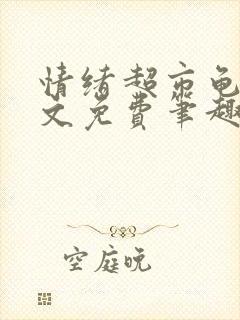 情绪超市龟
文免费笔趣
空庭晚